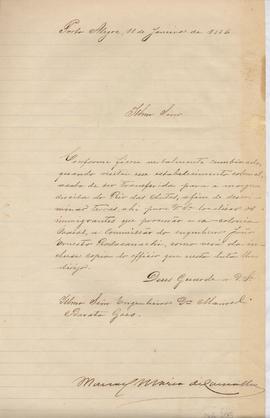 Porto Alegre, 11 de Janeiro de 1886
Illmo Snr
Conforme ficou verbalmente combinado,
quando visitei esse estabelecimento colonial,
acaba de ser transferida para a margem
direita do Rio das Antas, afim de descri-
minar terras, ahi para localisar os
immigrantes que procurão essa colonia
a Commissão do engenheiro João
Ernesto como verá da in-
clusa copia do officio que nesta data lhe
dirijo.
Deus Guarde a V.S.
Illmo Snr Engenheiro Dr Manoel
Barata Góes.
Manoel Maria de Carvalho